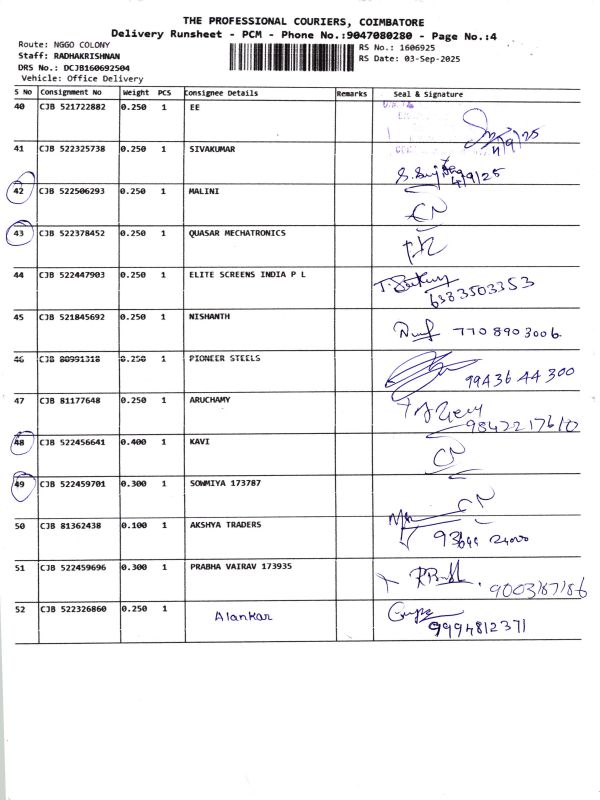 THE PROFESSIONAL COURIERS, COIMBATORE
Delivery Runsheet - PCM - Phone No.:9047080280 - Page No.:4
Route: NGGO COLONY RS No.: 1606925
Staff: RADHAKRISHNAN RS Date: 03-Sep-2025
DRS No.: DCJB160692504
Vehicle: Office Delivery
S No Consignment No Weight PCS Consignee Details Remarks Seal & Signature
40 CJB 521722882 0.250 1 EE 4/9/25
41 CJB 522325738 0.250 1 SIVAKUMAR 4/9/25
42 CJB 522506293 0.250 1 MALINI CN
43 CJB 522378452 0.250 1 QUASAR MECHATRONICS
44 CJB 522447903 0.250 1 ELITE SCREENS INDIA P L 6383503353
45 CJB 521845692 0.250 1 NISHANTH 7708903006
46 CJB 80991318 0.250 1 PIONEER STEELS 99436 44 300
47 CJB 81177648 0.250 1 ARUCHAMY 9847217610
48 CJB 522456641 0.400 1 KAVI CN
49 CJB 522459701 0.300 1 SOWMIYA 173787 CN
50 CJB 81362438 0.100 1 AKSHYA TRADERS 93644 24000
51 CJB 522459696 0.300 1 PRABHA VAIRAV 173935 9003187186
52 CJB 522326860 0.250 1 Alankar 9994812371